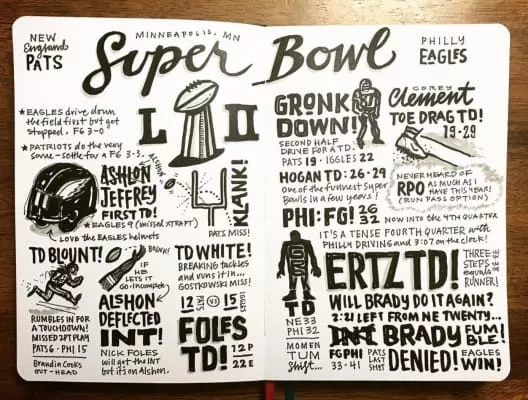 NEW
England
PATS
MINNEAPOLIS, MN
Super Bowl
PHILLY
EAGLES
LII
★EAGLES drive down
the field first but got
stopped. FG 3-0
★PATRIOTS do the very
same-settle for a FG 3-3.
ALSHON
ASHLON
JEFFREY
FIRST TD!
★EAGLES 9 (missed XTRAPT)
LOVE the EAGLES helmets
KLANK!
PATS MISS!
TD BLOUNT!
RUMBLES IN FOR
A TOUCHDOWN!
MISSED 2PT PLAY
PATS 6 - PHI 15
Brandin Cooks
OUT-HEAD
IF
HE
LETS IT
GO-incomplete
ALSHON
DEFLECTED
INT!
NICK FOLES
will get the INT
but it's on Alshon.
TD WHITE!
BREAKING tackles
and runs it in...
GOSTKOWSKI MISS!
12 PATS VS 15 IGGLES
FOLES
TD!
12P
22E
GRONK
DOWN!
SECOND HALF
DRIVE FOR A TD.
PATS 19 - IGGLES 22
HOGAN TD: 26-29
One of the funnest Super
Bowls in a few years!
PHI: FG! 26
32
NOW INTO the 4TH QUARTER
COREY
Clement
TOE DRAG TD!
19-29
NEVER HEARD OF
RPO AS MUCH AS I
HAVE THIS YEAR!
(RUN PASS OPTION)
IT'S A TENSE FOURTH QUARTER with
PHILLY DRIVING and 3:07 on the clock!
TD
NE 33
PHI 32
MOMEN
TUM
Shift...
ERTZ TD!
33
38
THREE
STEPS
equals
RUNNER!
WILL BRADY DO IT AGAIN?
2:21 LEFT FROM NE TWENTY...
INT BRADY FUM
BLE!
FG PHI
33-41
PATS
LAST
SHOT
DENIED!
EAGLES
WIN!